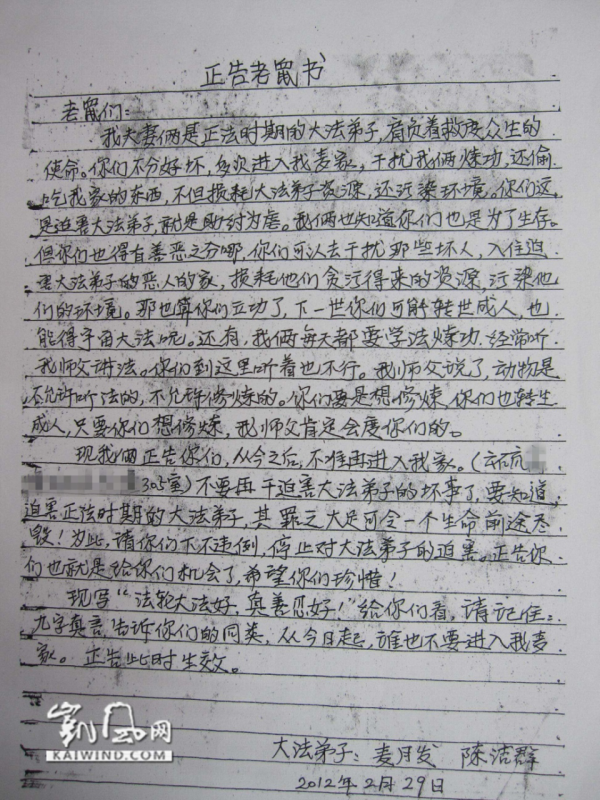 正告老鼠书
老鼠们:
我夫妻俩是正法时期的大法弟子,肩负着救度众生的
使命。你们不分好坏,多次进入我麦家,干扰我俩炼功,还偷
吃我家的东西,不但损耗大法弟子资源,还污染环境。你们这
是迫害大法弟子,就是助纣为虐。我俩也知道你们也是为了生存。
但你们也得有善恶之分哪,你们可以去干扰那些坏人,入住迫
害大法弟子的恶人的家,损耗他们贪污得来的资源,污染他
们的环境。那也算你们立功了,下一世你们可能转世成人,也
能得宇宙大法呢。还有,我俩每天都要学法炼功,经常听
我师父讲法。你们到这里听着也不行。我师父说了,动物是
不允许听法的,不允许修炼的。你们要是想修炼,你们也转生
成人,只要你们想修炼,我师父肯定会度你们的。
现我俩正告你们,从今之后,不准再进入我家。(云硫
305室)不要再干迫害大法弟子的坏事了,要知道
迫害正法时期的大法弟子,其罪之大足可令一个生命前途尽
毁!为此,请你们下不违例,停止对大法弟子的迫害。正告你
们也就是给你们机会了,希望你们珍惜!
现写“法轮大法好,真善忍好!”给你们看,请记住:
九字真言,告诉你们的同类,从今日起,谁也不要进入我麦
家。正告此时生效。
大法弟子:麦月发 陈洁群
2012年2月29日
凯风网
KAIWIND.COM